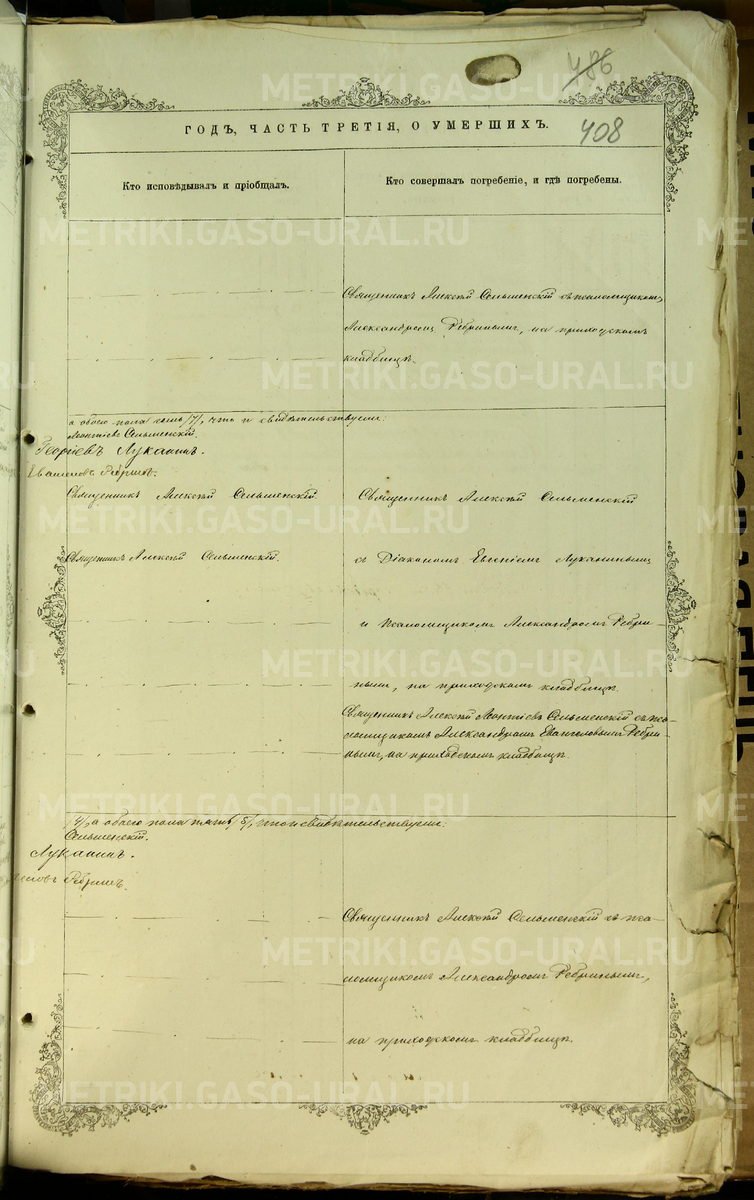 486
408
ГОДЪ, ЧАСТЬ ТРЕТІЯ, О УМЕРШИХЪ.
Кто исповѣдывалъ и пріобщалъ.
Кто совершалъ погребеніе, и гдѣ погребены.
Священникъ Алексѣй Сельменскій съ псаломщикомъ
Александромъ Ребринымъ, на приходскомъ
кладбищѣ.
а обоего пола семь /7/, что и свидѣтельствуемъ:
Леонтіевъ Сельменскій.
Георгіевъ Луканинъ.
Ребринъ.
Священникъ Алексѣй Сельменскій
Священникъ Алексѣй Сельменскій.
Священникъ Алексѣй Сельменскій
съ Діакономъ Евгеніемъ Луканинымъ
и Псаломщикомъ Александромъ Ребри-
нымъ, на приходскомъ кладбищѣ.
Священникъ Алексѣй Леонтіевъ Сельменскій съ пса-
ломщикомъ Александромъ Ребри-
нымъ, на приходскомъ кладбищѣ.
/4/, а обоего пола пять /5/, что и свидѣтельствуемъ:
Сельменскій.
Луканинъ.
Ребринъ.
Священникъ Алексѣй Сельменскій съ пса-
ломщикомъ Александромъ Ребринымъ,
на приходскомъ кладбищѣ.
METRIKI.GASO-URAL.RU